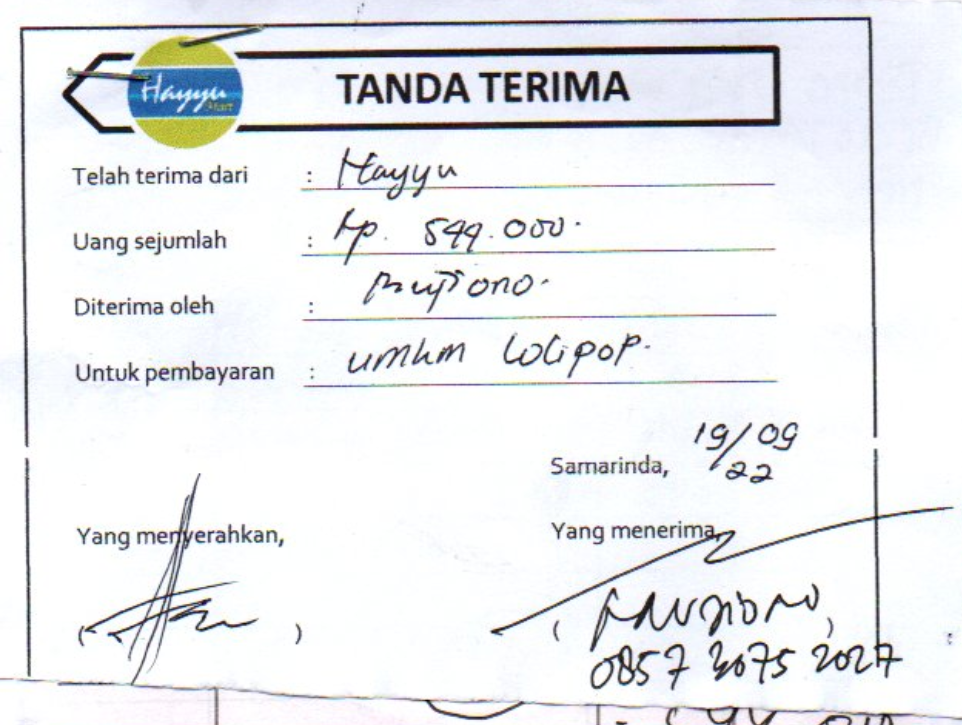 Hayyu
Mart
TANDA TERIMA
Telah terima dari : Hayyu
Uang sejumlah : Rp.
Diterima oleh :
Untuk pembayaran : umkm Lolipop.
Samarinda, 19/09
22
Yang menyerahkan, Yang menerima,
( ) ( )
0857 2027